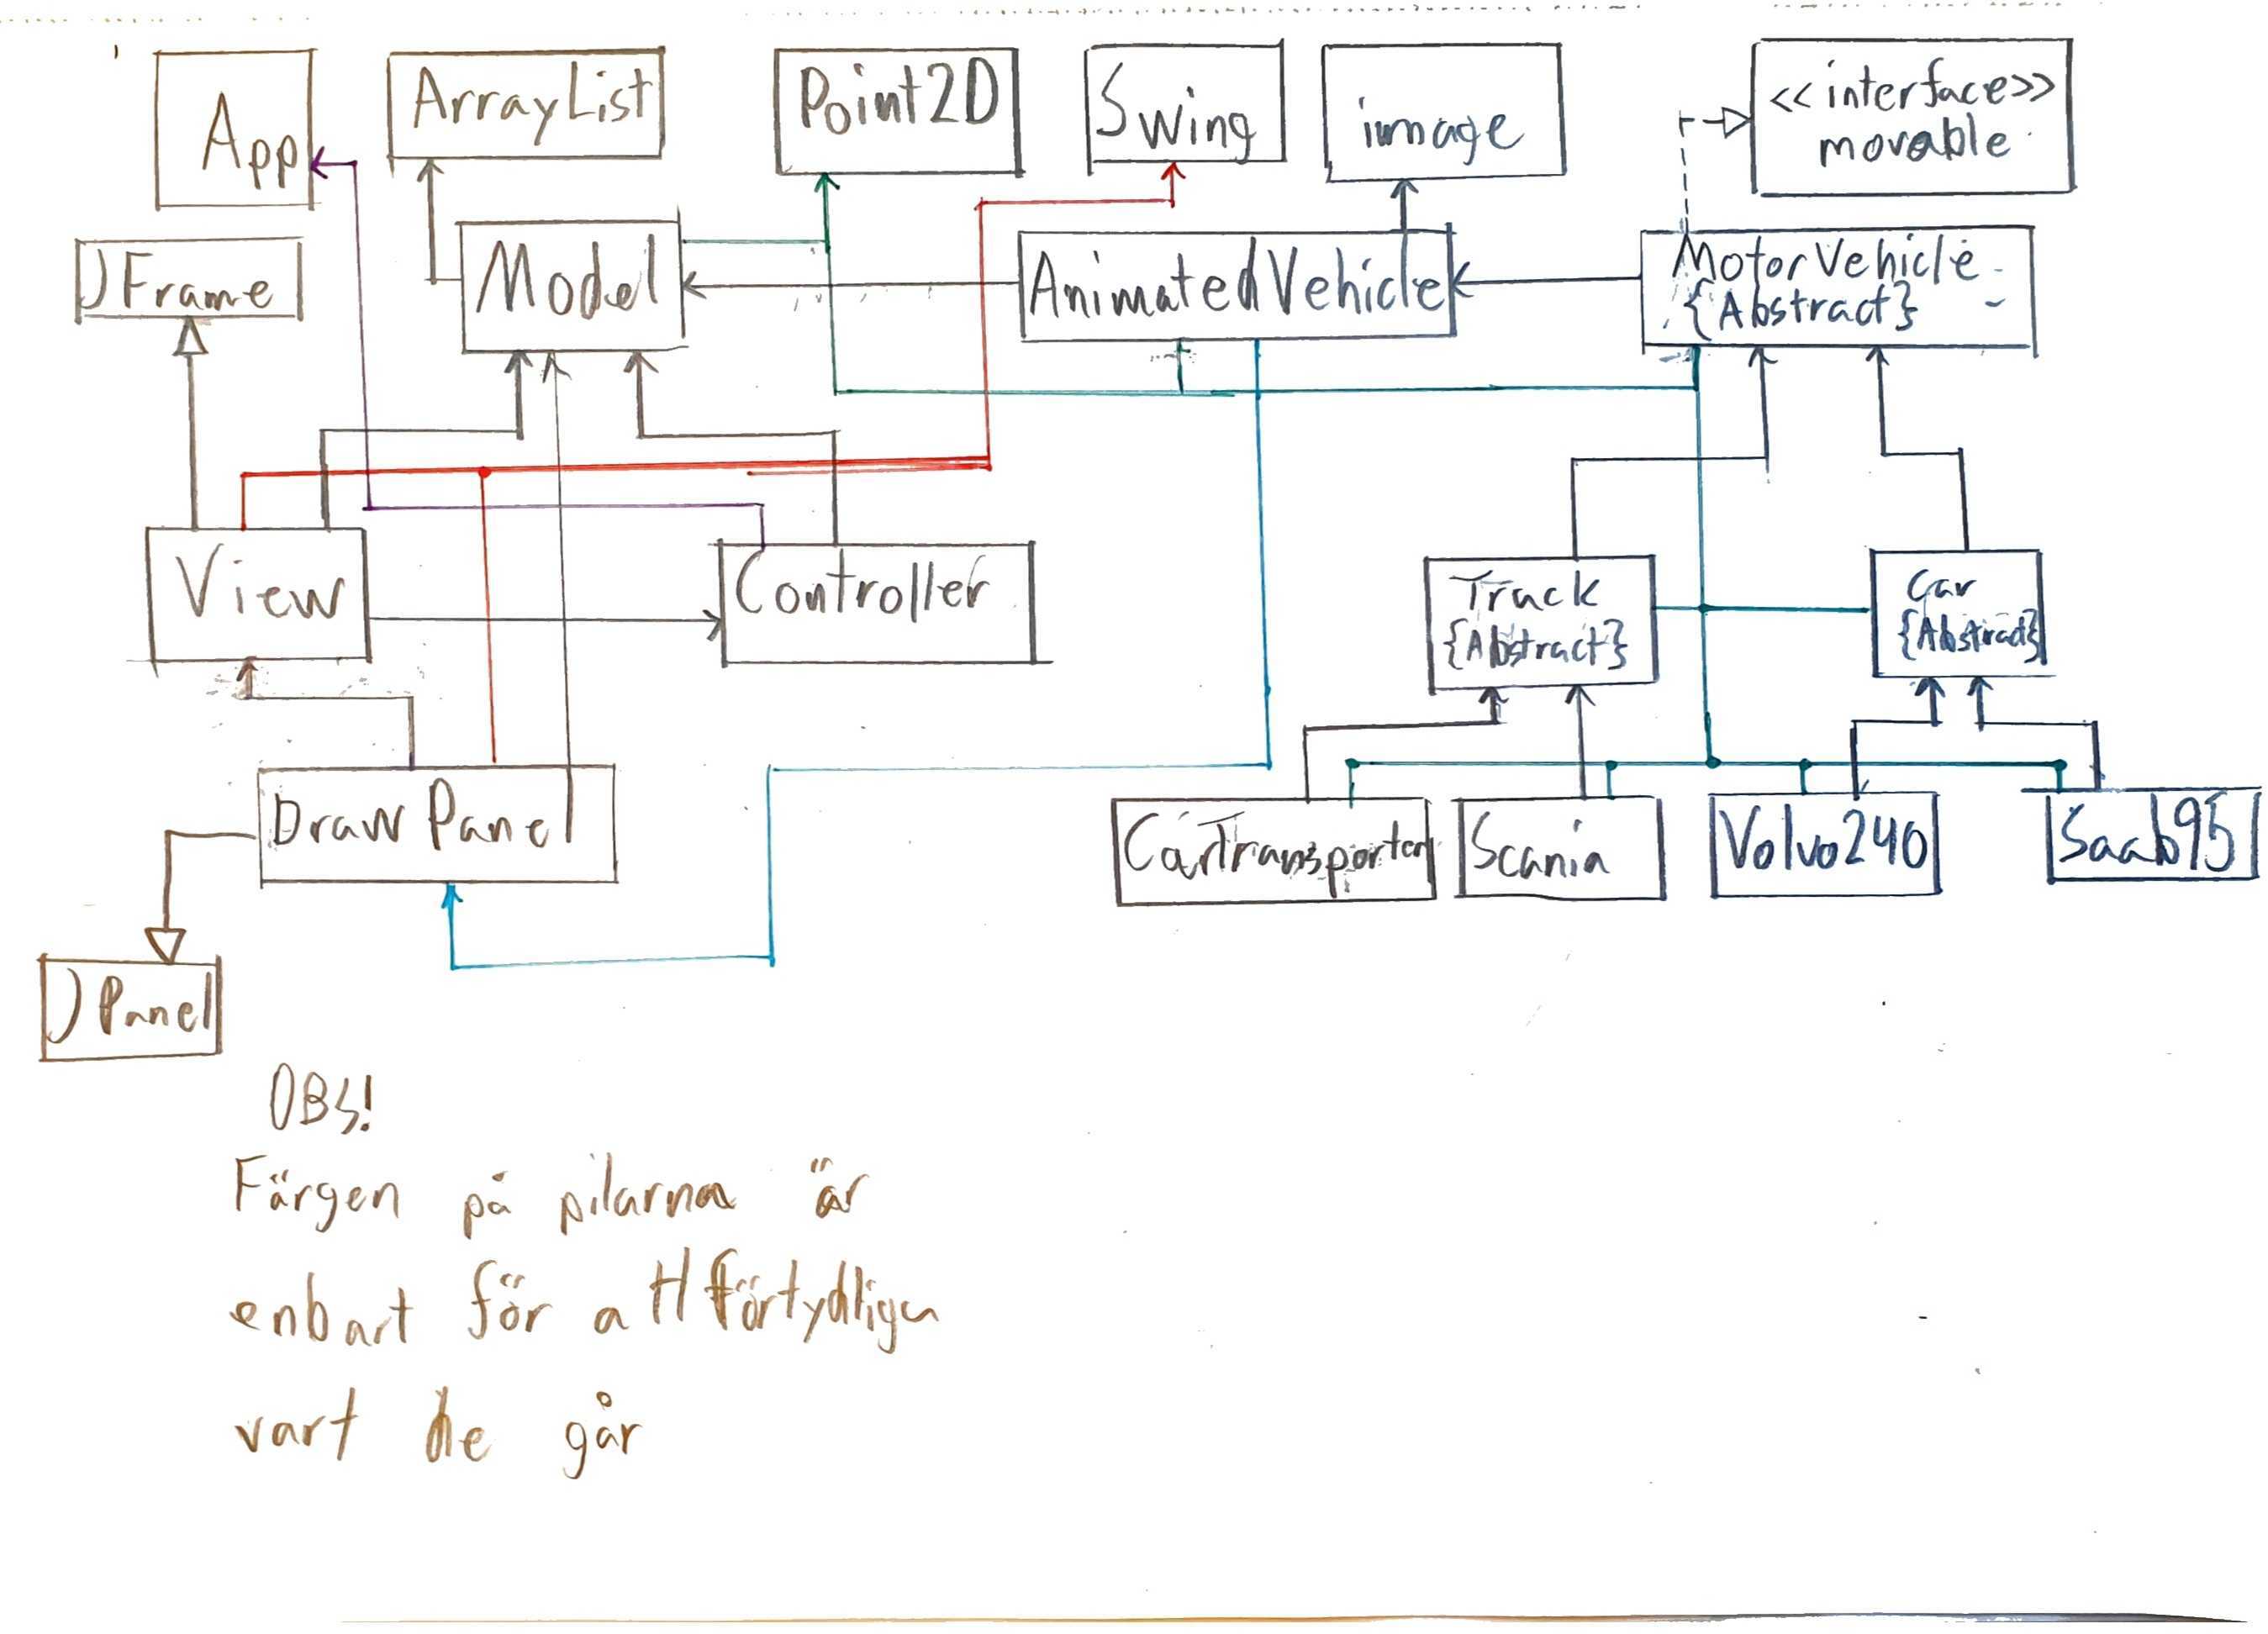 App
ArrayList
Point2D
Swing
image
<<interface>>
movable
JFrame
Model
AnimatedVehicle
MotorVehicle
{Abstract}
View
Controller
Track
{Abstract}
Car
{Abstract}
Draw Panel
CarTransporter
Scania
Volvo240
Saab95
JPanel
OBS!
Färgen på pilarna är
enbart för att förtydliga
vart de går